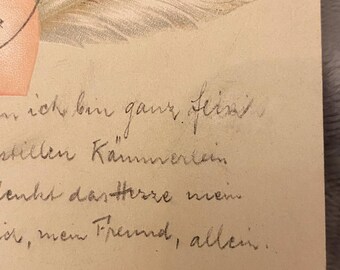 n ich bin ganz
stillen Kämmerlein
denkt das Herze mein
, mein Freund, allein.